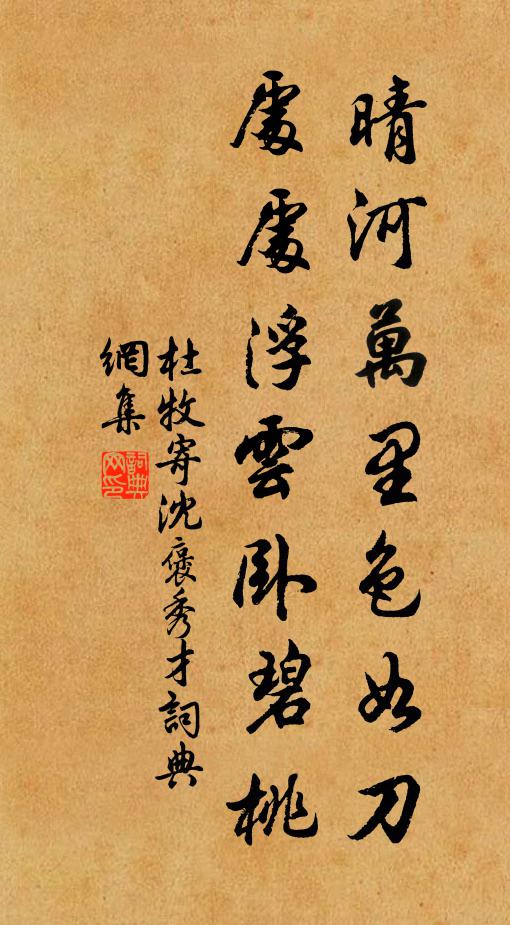 晴河萬里色如刀
處處浮雲臥碧桃
杜牧寄沈褒秀才詞典
網集
詞典網印